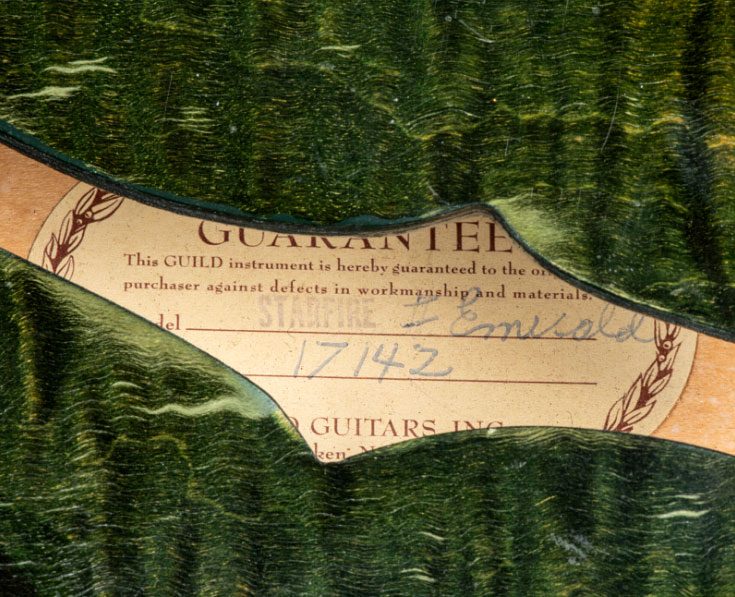 GUARANTEE
This GUILD instrument is hereby guaranteed to the
purchaser against defects in workmanship and materials.
STARFIRE II Emerald
17142
GUITARS, INC